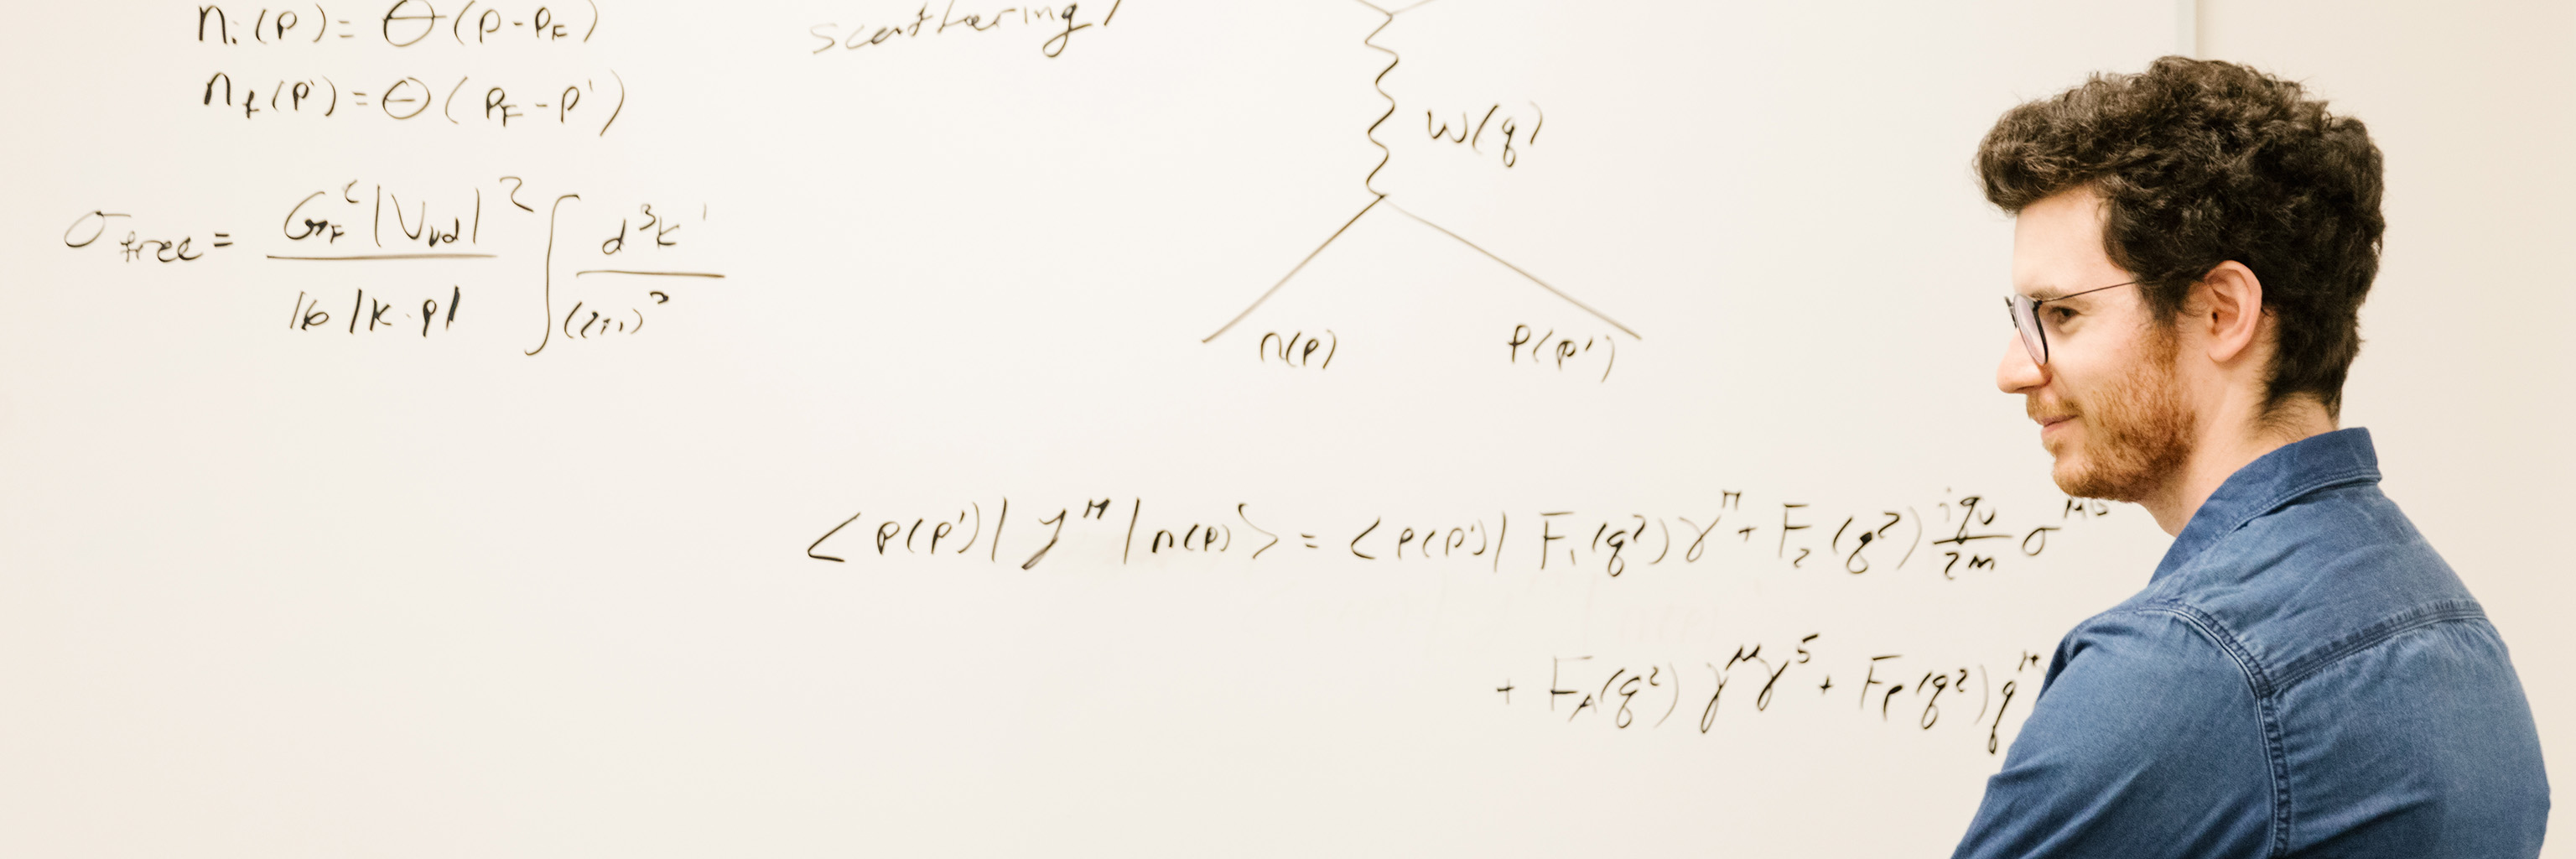 nᵢ(p) = Θ(p-p_F)
n_f(p') = Θ(p_F-p')
scattering
W(q)
σ_free = G_F²|V_ud|² / 16|k·p| ∫ d³k' / (2π)³
n(p) p(p')
<p(p')|J^μ|n(p)> = <p(p')| F₁(q²)γ^μ + F₂(q²) iq_ν/2m σ^μν
+ F_A(q²)γ^μγ⁵ + F_P(q²)q^μ